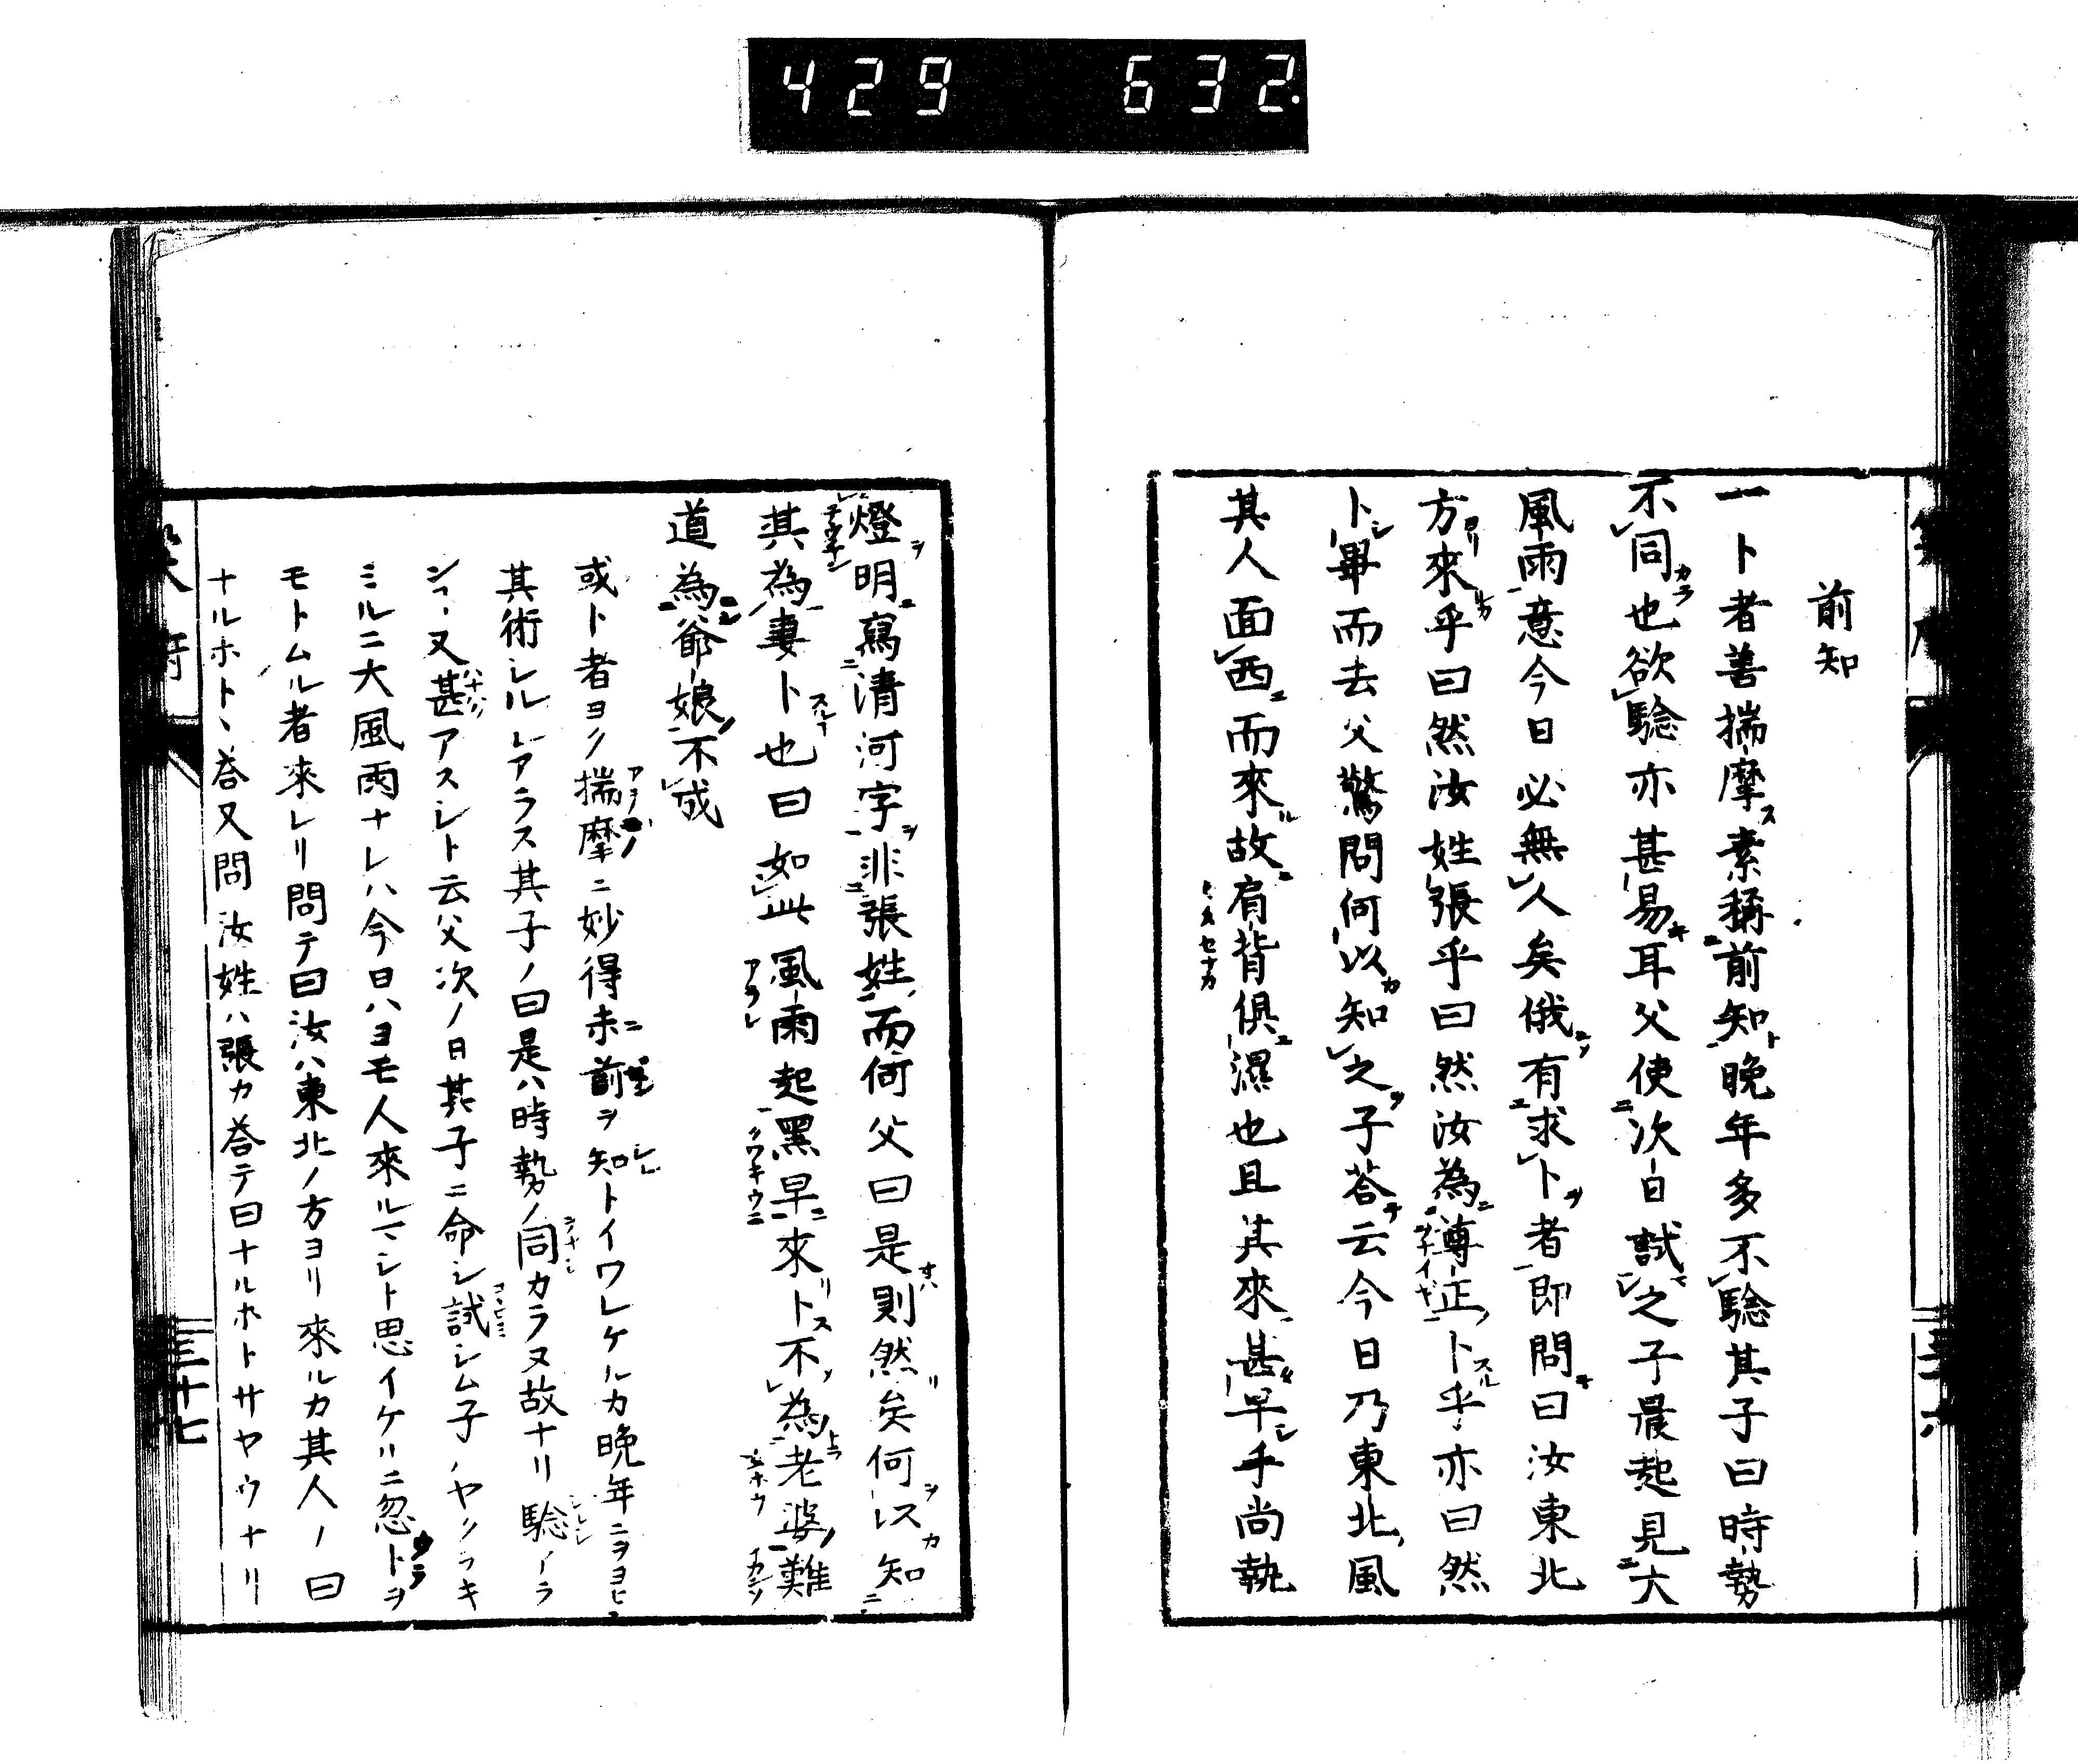 429 632
前知
一卜者善揣摩素稱前知晚年多不驗其子曰時勢
不同也欲驗亦甚易耳父使次日試之子晨起見大
風雨意今日必無人矣俄有求卜者即問曰汝東北
方來乎曰然汝姓張乎曰然汝為尊正卜乎亦曰然
卜畢而去父驚問何以知之子荅云今日乃東北風
其人面西而來故肩背俱濕也且其來甚早手尚執
燈明寫清河字非張姓而何父曰是則然矣何以知
其為妻卜也曰如此風雨起黑早來卜不為老婆難
道為爺娘不成
或卜者ヨク揣摩ニ妙得未前ヲ知トイワレケルカ晚年ニヲヨヒ
其術シルシアラス其子ノ曰是ハ時勢ノ同カラヌ故ナリ驗ノラ
シヿ又甚アスシト云父次ノ日其子ニ命シ試シム子ノヤノラキ
ミルニ大風雨ナレハ今日ハヨモ人來ルマシト思イケリニ忽トヲ
モトムル者來レリ問テ曰汝ハ東北ノ方ヨリ來ルカ其人ノ曰
ナルホト丶荅又問汝姓ハ張カ荅テ曰ナルホトサヤウナリ
三十七